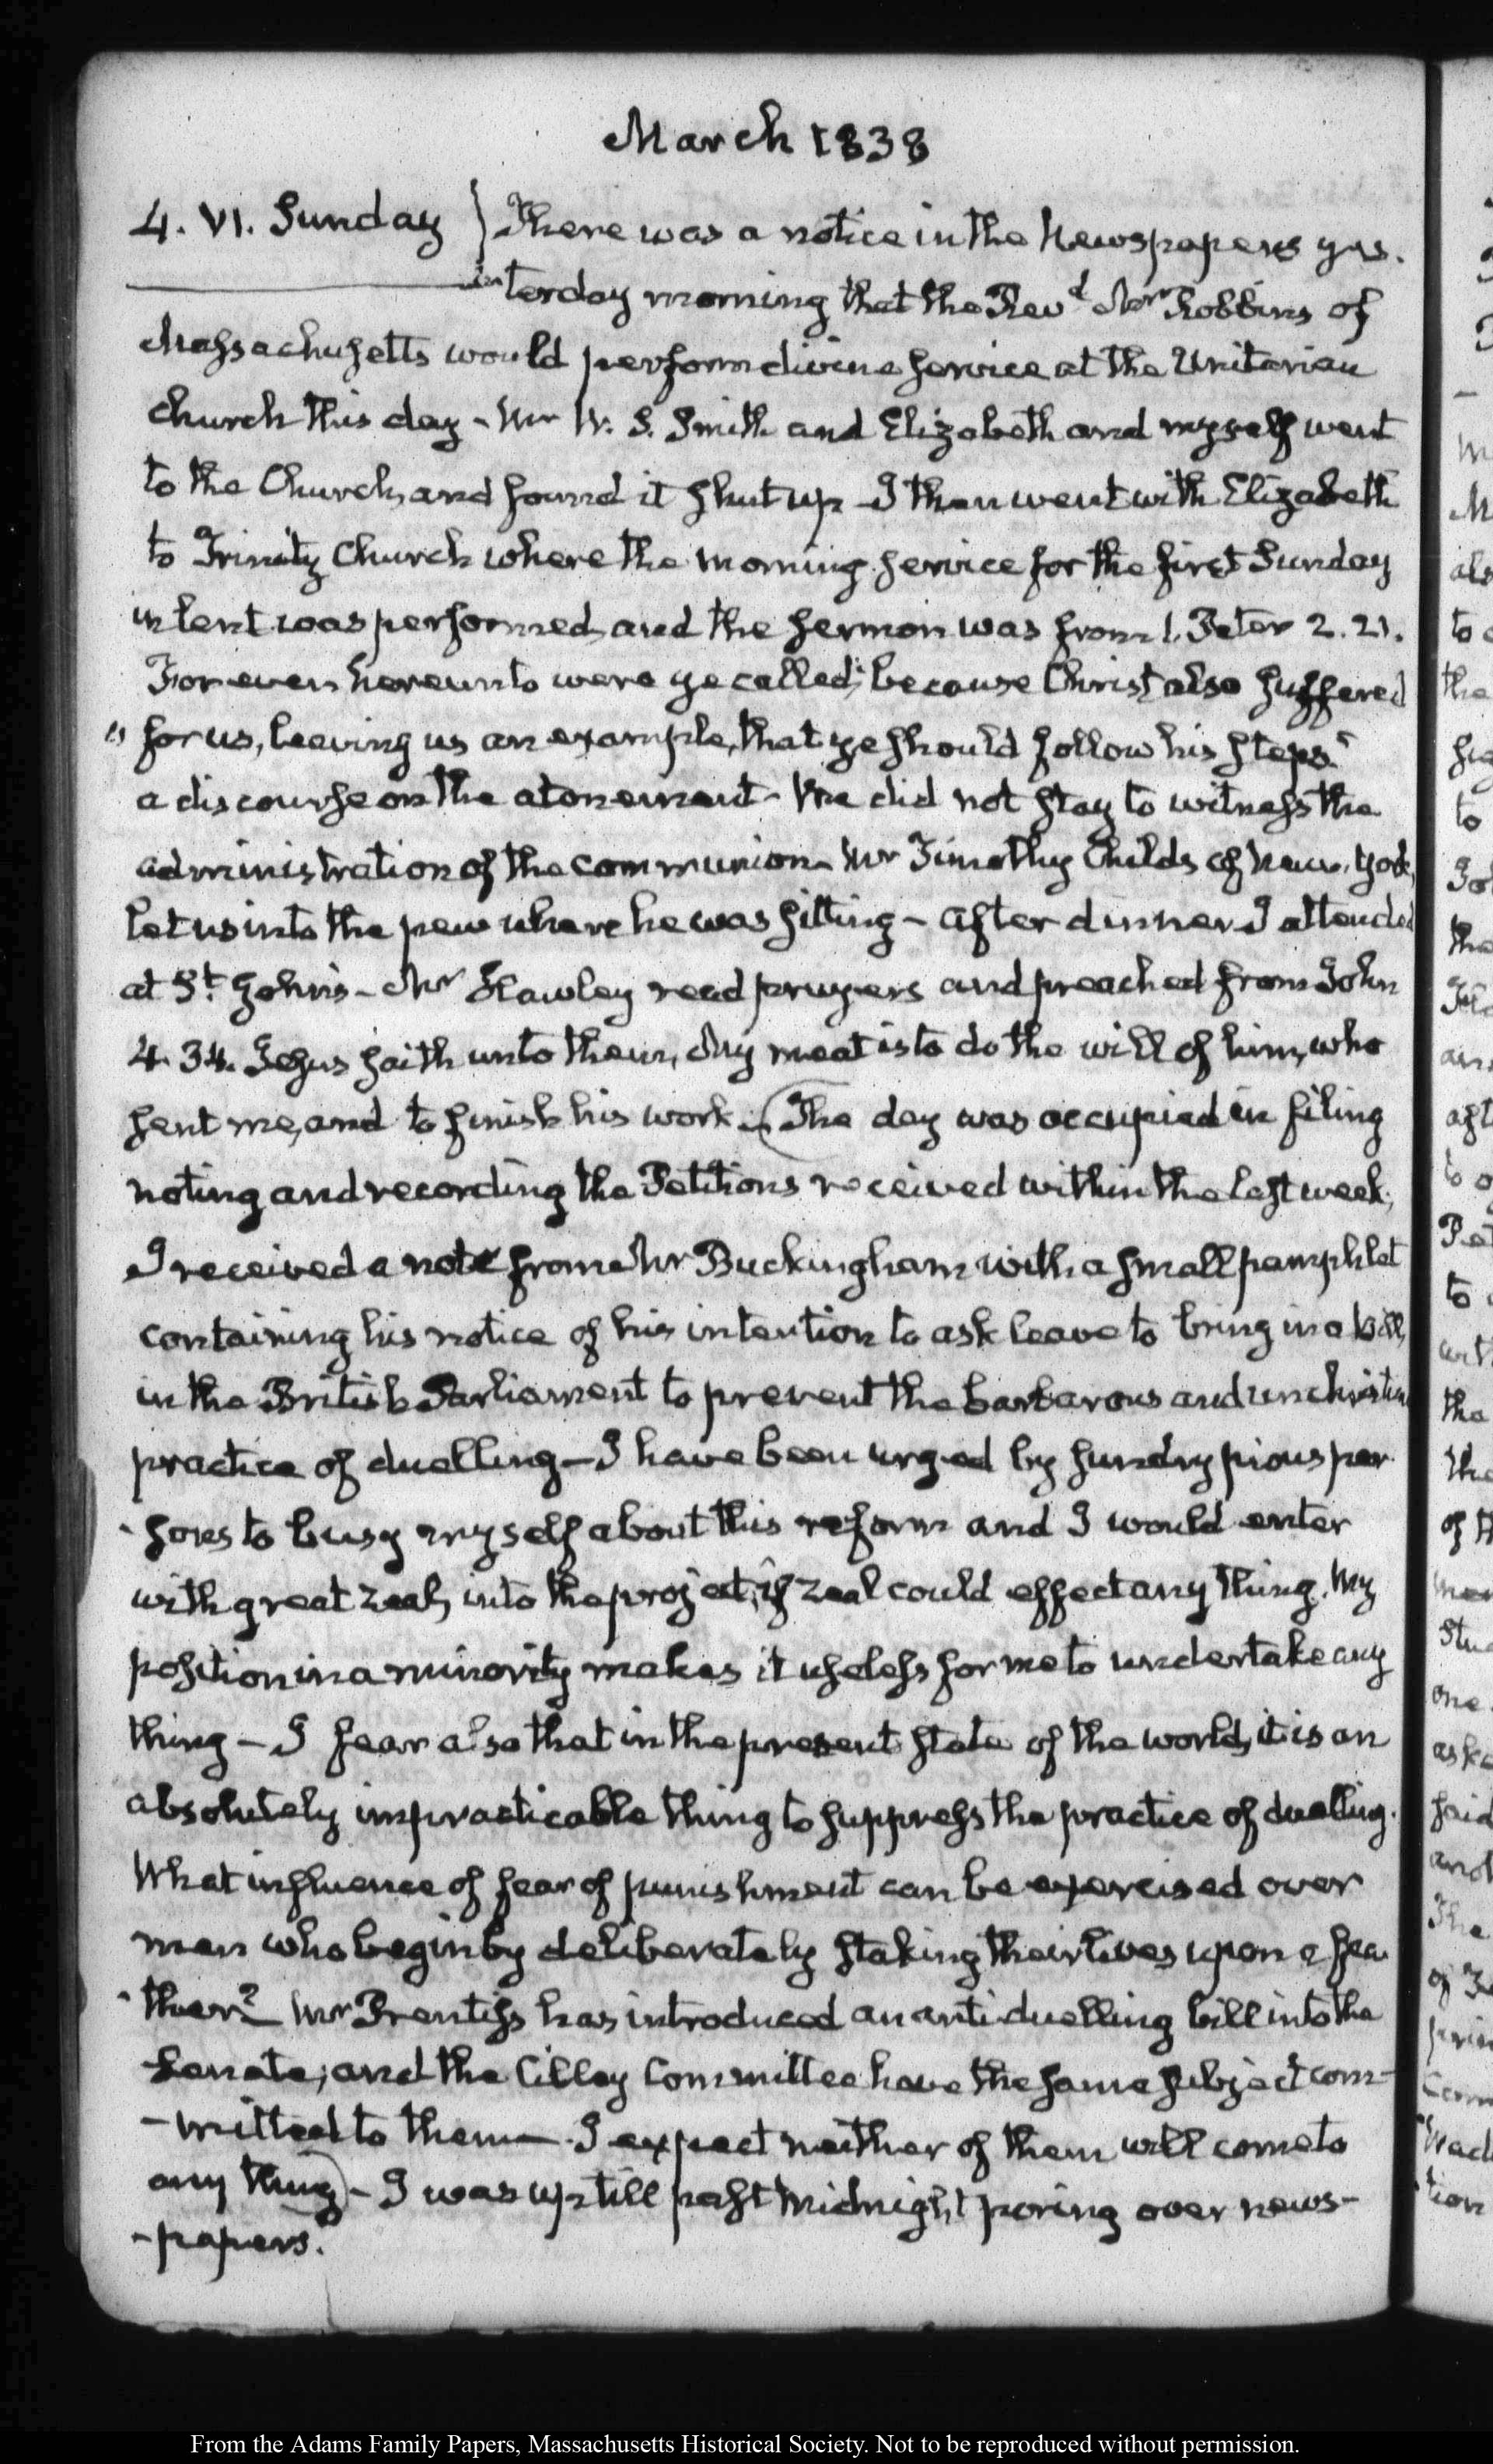 March 1838
4. VI. Sunday } There was a notice in the Newspapers yes-
terday morning that the Revd. Mr Robbins of
Massachusetts would perform divine service at the Unitarian
Church this day - Mr W. S. Smith and Elizabeth and myself went
to the Church, and found it shut up - I then went with Elizabeth
to Trinity Church where the morning service for the first Sunday
in Lent was performed, and the sermon was from 1. Peter 2. 21.
For even hereunto were ye called; because Christ also suffered
" for us, leaving us an example, that ye should follow his steps"
a discourse on the atonement - We did not stay to witness the
administration of the communion - Mr Timothy Childs of New-York,
let us into the pew where he was sitting - after dinner I attended
at St. John's - Mr Hawley read prayers and preached from John
4. 34. Jesus saith unto them, My meat is to do the will of him, who
sent me, and to finish his work - (The day was occupied in filing
noting and recording the Petitions received within the last week,
I received a note from Mr Buckingham with a small pamphlet
containing his notice of his intention to ask leave to bring in a bill,
in the British Parliament to prevent the barbarous and unchristian
practice of duelling - I have been urged by sundry pious per-
-sons to busy myself about this reform and I would enter
with great zeal, into the project, if zeal could effect any thing. My
position in a minority makes it useless for me to undertake any
thing - I fear also that in the present state of the world, it is an
absolutely impracticable thing to suppress the practice of duelling.
What influence of fear of punishment can be exercised over
men who begin by deliberately staking their lives upon a fea-
-ther? Mr Prentiss has introduced an anti duelling bill into the
Senate; and the Cilley Committee have the same subject com-
-mitted to them - I expect neither of them will come to
any thing) - I was up till past midnight poring over news-
-papers.
From the Adams Family Papers, Massachusetts Historical Society. Not to be reproduced without permission.